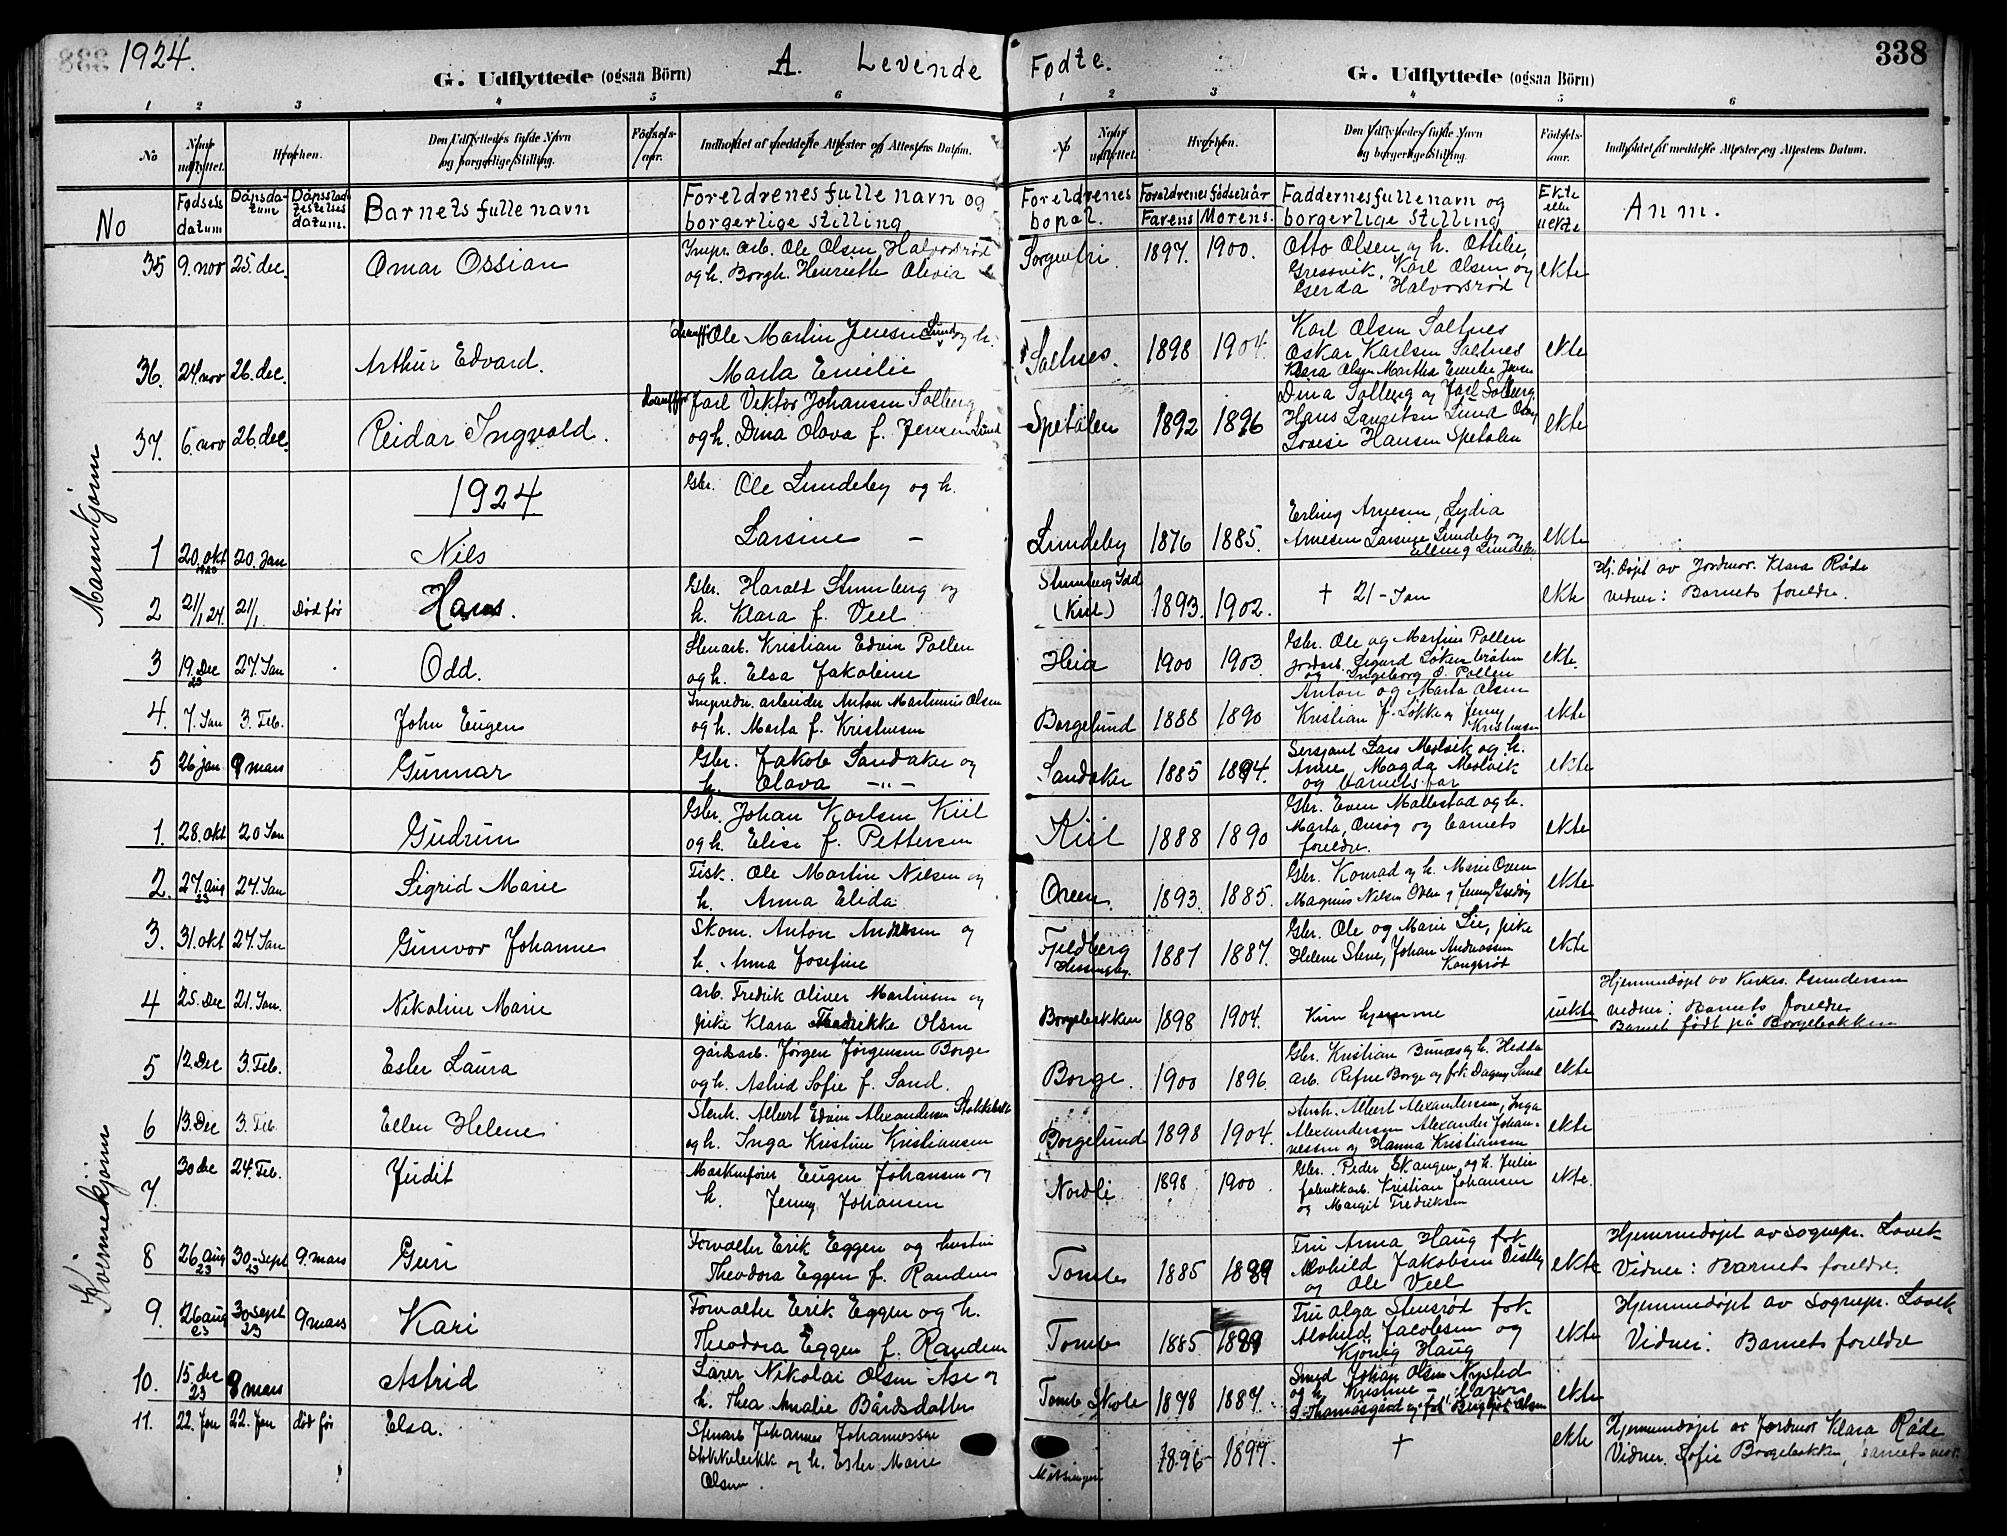 1924.
A. Levende Fødte.
338
G. Udflyttede (ogsaa Börn)
G. Udflyttede (ogsaa Börn)
1 2 3 4 5 6
1 2 3 4 5 6
No Naar udflyttet. Hvorhen. Den Udflyttedes fulde Navn og borgerlige Stilling. Födsels-aar. Indholdet af meddelte Attester og Attestens Datum.
No Naar udflyttet. Hvorhen. Den Udflyttedes fulde Navn og borgerlige Stilling. Födsels-aar. Indholdet af meddelte Attester og Attestens Datum.
No Fødsels datum Dåpsda-tum Barnets fulle navn Foreldrenes fulle navn og borgerlige stilling
Foreldrenes bopæl. Foreldrenes fødselsår Farens Morens. Faddernes fulle navn og borgerlige stilling Ekte eller uekte Anm.
Mannkjønn
35 9. nov 25. dec. Omar Ossian
Impr. arb. Ole Olsen Halvorsrød
og h. Borgh. Henriette Olivia
Sorgenfri. 1897. 1900.
Otto Olsen og h. Ottilie,
Gressvik, Karl Olsen og
Gerda Halvorsrød
ekte
36. 24. nov 26. dec. Arthur Edvard.
Ole Martin Jensen Lund og h.
Marta Emilie
Saltnes. 1898 1904.
Karl Olsen Saltnes
Oskar Karlsen Saltnes
Klara Olsen Martha Emilie Jensen
ekte
37. 6. nov 26. dec. Reidar Ingvald.
Jarl Viktor Johansen Solberg
og h. Dina Olava f. Jensen Lund
Spetalen 1892 1896
Dina Solberg og Jarl Solberg,
Hans Lauritsen Lund
Lovise Hansen Spetalen
ekte
1924
1 20. okt 1923 20. Jan Nils
Gbr. Ole Lundeby og h.
Larsine –
Lundeby 1876 1885.
Erling Arnesen, Lydia
Arnesen Larsine Lundeby og
Elling Lundeby
ekte
2 21/1 24. 21/1 Død før Hans.
Gbr. Harald Stumberg og
h. Klara f. Veel
(Kiil) 1893. 1902.
† 21 – Jan
ekte
Hj. døpt av Jordmor. Klara Røde
vidner: Barnets foreldre.
3 19. Dec 23 27. Jan Odd.
Stenarb. Kristian Edvin Pollen
og h. Elsa Jakobine
Heia 1900 1903
Gbr. Ole og Martine Pollen
og Ingeborg O. Pollen
ekte.
4. 7. Jan 3. Feb. John Eugen
Impredn. arbeider Anton Martinius Olsen
og h. Marta f. Kristensen
Borgelund 1888 1890
Anton og Marta Olsen
Kristian F. Løkke og Jenny
Kristensen
ekte
5 26 jan 9 mars Gunnar
Gbr. Jakob Sandaker og
h. Olava – " –
Sandaker 1885 1894.
Sersjant Lars Meslvik og h.
Anne, Magda Meslvik
og barnets far
ekte
Kvinnekjønn
1. 28. okt 20 Jan Gudrun
Gbr. Johan Karlsen Kiil
og h. Elise f. Pettersen
Kiil 1888 1890
Gbr. Even Mallestad og h.
Marta, Omsøg og barnets
foreldre.
ekte
2. 27. aug 23 27. Jan Sigrid Marie
Fisk. Ole Martin Nilsen og
h. Anna Elida
Oven. 1893. 1885.
Gbr. Konrad og h. Marie Oven
Magnus Nilsen Oven
ekte
3. 31. okt 27. Jan Gunvor Johanne
Skom. Anton Andersen og
h. Anna Josefine
Fjeldberg 1887 1887.
Gbr. Ole og Marie Lie, pike
Helene Stene, Johan Andreassen
Kongsrød
ekte
4 25. Dec 21. Jan. Nikoline Marie
Arb. Fredrik Oliver Martinsen og
pike Klara Fredrikke Olsen
Borgebakken 1898 1904.
Kun hjemme
uekte
Hjemmedøpt av Kirkes. Gundersen
vidner: Barnets foreldre
Barnet født på Borgebakken
5 12. Dec 3. Feb. Ester Laura
gårdsarb. Jørgen Jørgensen Borge
og h. Astrid Sofie f. Sand.
Borge. 1900 1896
Gbr. Kristian Bunæs og h. Hedda
arb. Refne Borge og frk. Dagny Sand
ekte
6 13. Dec 3. Feb. Ellen Helene
Stenh. Albert Edvin Alexandersen Stokkebekk
og h. Inga Kristine Kristiansen
Borgelund 1898 1904.
Stenh. Albert Alexandersen, Inga
Alexandersen Alexander Johan-
nessen og Hanna Kristiansen
ekte
7. 30 dec 24. Feb. Judit
Maskinfører Eugen Johansen og
h. Jenny Johansen
Nordli 1898 1900
Gbr. Peder Skaugen og h. Julie
fabrikkarb. Kristian Johansen
og Margit Fredriksen
ekte.
8 26 aug 23 30-Sept 23 9. mars Guri
Forvalter Erik Eggen og hustru
Theodora Eggen f. Randem
Tomb 1885 1889
Fru Anna Haug frk.
Alvhild Jakobsen Disthy
og Ole Veel
ekte
Hjemmedøpt av sognepr. Lovek
Vidner: Barnets foreldre.
9. 26 aug 23 30 sept 23 9 mars Kari
Forvalter Erik Eggen og h.
Theodora Eggen f. Randem
Tomb 1885 1889
Fru Olga Stensrød frk.
Alvhild Jacobsen og
Kjönig Haug
ekte
Hjemmedøpt av Sognepr. Lovek
Vidner: Barnets foreldre
10. 15. dec 23 9 mars Astrid
Lærer Nikolai Olsen Ase og
h. Thea Amalie Bårdsdatter
Tomb Skole 1878 1887.
Smed Johan Olsen Nysted
og h. Kristine – Lærer
S. Thomasgård og frk. Bergljot Olsen
ekte
11. 22. Jan 22. Jan død før Elsa.
Stenarb. Johannes Johannessen
Stokkebekk og h. Ester Marie
Olsen.
Missingen 1896 1897.
†
ekte
Hjemmedøpt av Jordmor Klara Røde
Vidner. Sofie Borgebakken, barnets mor.